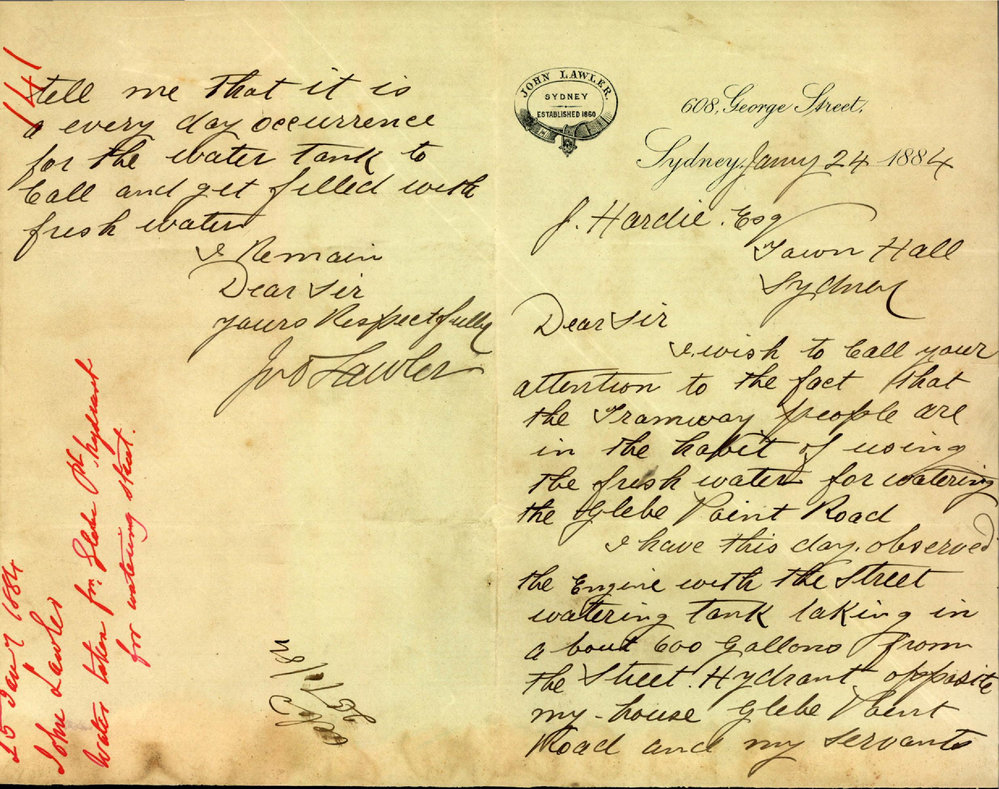 JOHN LAWLER.
SYDNEY
ESTABLISHED 1860
608, George Street,
Sydney, Jany 24 1884
J. Hardie. Esq
Town Hall
Sydney
Dear Sir
I wish to Call your
attention to the fact that
the Tramway people are
in the habit of using
the fresh water for watering
the Glebe Point Road
I have this day observed
the Engine with the Street
watering tank taking in
about 600 Gallons from
the Street Hydrant opposite
my house Glebe Point
Road and my servants
tell me that it is
a every day occurrence
for the water tank to
Call and get filled with
fresh water
I Remain
Dear Sir
Yours Respectfully
Jno Lawler
141
25 Jany 1884
John Lawler
Water taken fm. Glebe Pt. hydrant
for watering street.